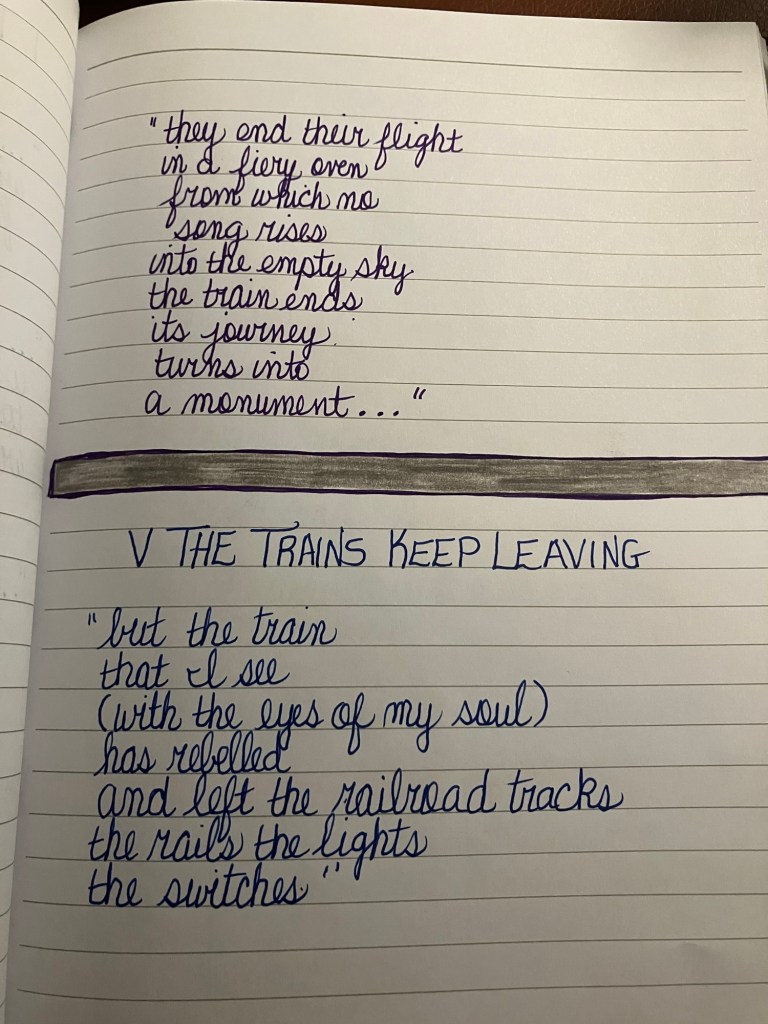 "they end their flight
in a fiery oven
from which no
song rises
into the empty sky
the train ends
its journey
turns into
a monument..."
V THE TRAINS KEEP LEAVING
"but the train
that I see
(with the eyes of my soul)
has rebelled
and left the railroad tracks
the rails the lights
the switches"